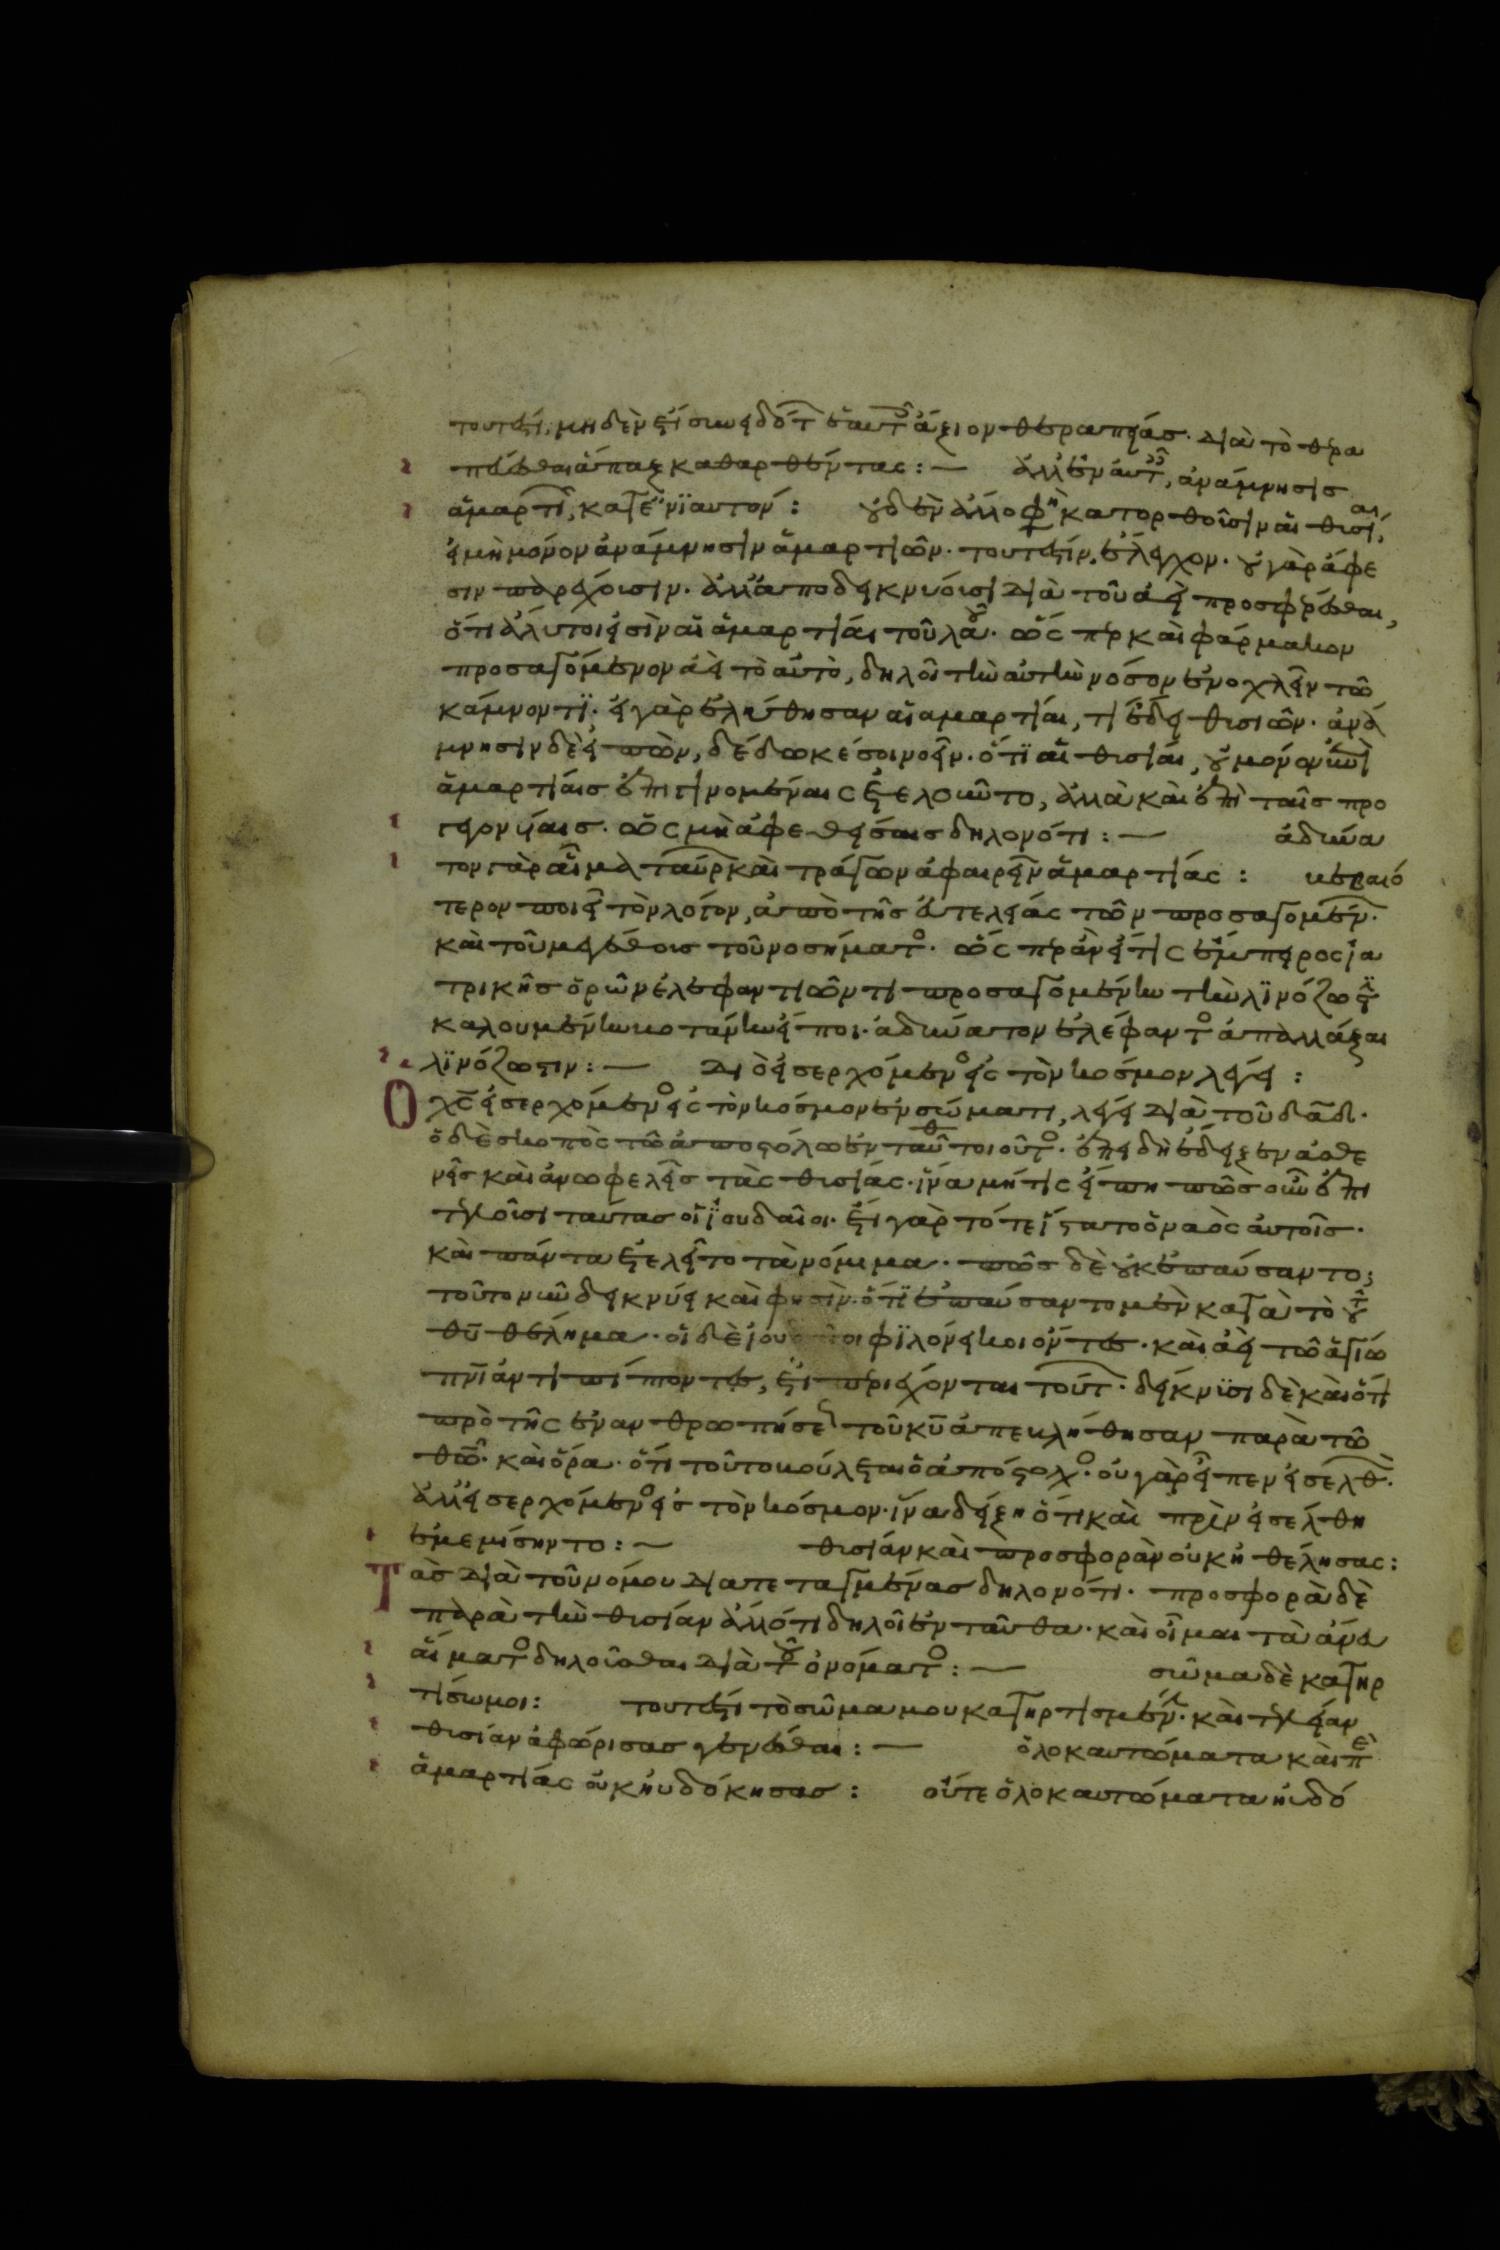 τουτέστι, μηδὲν ἔτι συνειδότ ἑαυτ ἄξιον θεραπείας· διὰ τὸ θερα
πεύεσθαι ἅπαξ καθαρθέντας : — ἀλλ' ἐν αὐτ, ἀνάμνησις
ἁμαρτι, κατ' ἐνϊαυτόν : οὐδὲν ἄλλο φη κατορθοῦσιν αἱ θυσίαι,
εἰ μὴ μόνον ἀνάμνησιν ἁμαρτιῶν· τουτέστιν, ἔλεγχον· οὐ γὰρ ἄφε
σιν παρέχουσιν· ἀλλ' ἀποδεικνύουσι διὰ τοῦ ἀεὶ προσφέρεσθαι,
ὅτι ἄλυτοι εἰσὶν αἱ ἁμαρτίαι τοῦ λαοῦ· ὥσπερ καὶ φάρμακον
προσαγόμενον ἀεὶ τὸ αὐτὸ, δηλοῖ τὴν αὐτὴν νόσον ἐνοχλεῖν τῶ
κάμνοντϊ· εἰ γὰρ ἐλύθησαν αἱ ἁμαρτίαι, τί ἔδει θυσιῶν· ἀνά
μνησιν δὲ εἰπὼν, δέδωκέ σοι νοεῖν· ὅτϊ αἱ θυσίαι, οὐ μόνον
ἁμαρτίαις ἐπιγινομέναις ἐξελοῦντο, ἀλλὰ καὶ ἐπὶ ταῖς προ
γεγονυίαις· ὡς μὴ ἀφεθείσαις δηλονότι : — ἀδύνα
τον γὰρ αἷμα ταύρ καὶ τράγων ἀφαιρεῖν ἁμαρτίας : κυριώ
τερον ποιεῖ τὸν λόγον, ἀπὸ τῆς ἀτελείας τῶν προσαγομέν·
καὶ τοῦ μεγέθους τοῦ νοσήματος· ὥσπερ ἂν εἴ τις ἔμπειρος ἰα
τρικῆς ὁρῶν ἐλεφαντιῶντι προσαγομένην τὴν λϊνόζωστ
καλουμένην βοτάνην εἴποι· ἀδύνατον ἐλέφαντος ἀπαλλάξαι
λϊνόζωστιν : — διὸ εἰσερχόμενος εἰς τὸν κόσμον λέγει :
Ὁ χς εἰσερχόμενος εἰς τὸν κόσμον ἐν σώματι, λέγει διὰ τοῦ δαδ·
ὁ δὲ σκοπὸς τῶ ἀποστόλω ἐνταῦθ τοιοῦτος· ἐπειδὴ ἔδειξεν ἀσθε
νεῖς καὶ ἀνωφελεῖς τὰς θυσίας· ἵνα μή τις εἴπη πῶς οὖν ἐπι
τελοῦσι ταύτας οἱ ἰουδαῖοι· ἔτι γὰρ τότε ἵστατο ὁ ναὸς αὐτοῖς·
καὶ πάντα ἐτελεῖτο τὰ νόμιμα· πῶς δὲ οὐκ ἐπαύσαντο;
τοῦτο νῦν δεικνύει καὶ φησὶν· ὅτϊ ἐπαύσαντο μὲν κατὰ τὸ τοῦ
θυ θέλημα· οἱ δὲ ἰουδαῖοι φϊλόνεικοι ὄντες· καὶ ἀεὶ τῶ ἁγίω
πνϊ ἀντιπίπτοντες, ἔτι περιέχονται τούτ· δείκνυσι δὲ καὶ ὅτι
πρὸ τῆς ἐνανθρωπήσε τοῦ κυ ἀπεκλήθησαν παρὰ τῶ
θω· καὶ ὅρα· ὅτι τοῦτο βούλεται ὁ ἀπόστολος· οὐ γὰρ εἶπεν εἰσελθ·
ἀλλ' εἰσερχόμενος εἰς τὸν κόσμον· ἵνα δείξη ὅτι καὶ πρὶν εἰσέλθη
ἐμεμίσηντο : — θυσίαν καὶ προσφορὰν οὐκ ἠθέλησας :
Τὰς διὰ τοῦ νόμου διατεταγμένας δηλονότι· προσφορὰ δὲ
παρὰ τὴν θυσίαν ἄλλό τι δηλοῖ ἐνταῦθα· καὶ οἶμαι τὰ ἄνευ
αἵματος δηλοῦσθαι διὰ τοῦ ὀνόματος : — σῶμα δὲ κατηρ
τίσω μοι : τουτέστι τὸ σῶμα μου κατηρτισμέν· καὶ τελείαν
θυσίαν ἀφώρισας γενέσθαι : — ὁλοκαυτώματα καὶ πε
ἁμαρτίας οὐκ ηὐδόκησας : οὔτε ὁλοκαυτώματα ηὐδό